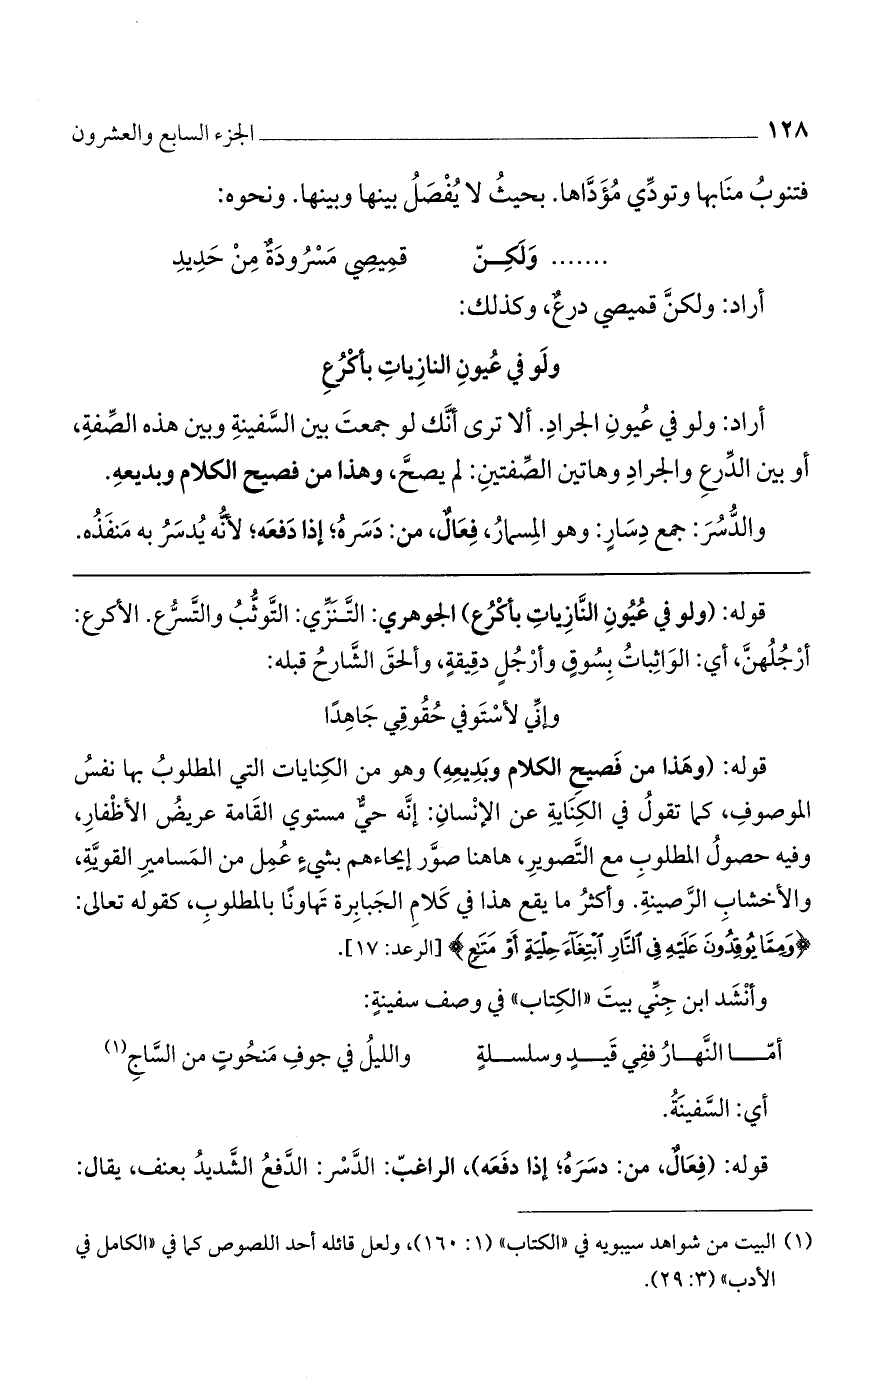 ١٢٨ ــــــــــ الجزء السابع والعشرون
فتنوبُ منَابها وتودِّي مُؤَدَّاها. بحيثُ لا يُفْصَلُ بينها وبينها. ونحوه:
....... وَلَكِـنّ قمِيصِي مَسْرُودَةٌ مِنْ حَدِيدِ
أراد: ولكنَّ قميصي درعٌ، وكذلك:
ولَو في عُيونِ النازِياتِ بأكْرُعِ
أراد: ولو في عُيونِ الجرادِ. ألا ترى أنَّك لو جمعتَ بين السَّفينةِ وبين هذه الصِّفةِ،
أو بين الدِّرعِ والجرادِ وهاتين الصِّفتينِ: لم يصحَّ، وهذا من فصيح الكلام وبديعهِ.
والدُّسُرَ: جمع دِسَارٍ: وهو المِسمارُ، فِعَالٌ، من: دَسَرهُ؛ إذا دَفعَه؛ لأنَّه يُدسَرُ به مَنفَذُه.
قوله: (ولو في عُيُونِ النَّازِياتِ بأكْرُعِ) الجوهري: التَّنَزِّي: التَّوثُّبُ والتَّسرُّع. الأكرع:
أرْجُلُهنَّ، أي: الوَاثِباتُ بِسُوقٍ وأرْجُلٍ دقِيقةٍ، وألحقَ الشَّارحُ قبله:
وإنِّي لأسْتَوفي حُقُوقِي جَاهِدًا
قوله: (وهَذا من فَصيحِ الكلام وبَديعِهِ) وهو من الكِنايات التي المطلوبُ بها نفسُ
الموصوفِ، كما تقولُ في الكِنَايةِ عن الإنْسانِ: إنَّه حيٌّ مستوي القَامة عريضُ الأظْفارِ،
وفيه حصولُ المطلوبِ مع التَّصويرِ، هاهنا صوَّر إيحاءهم بشيءٍ عُمِل من المَسامير القويَّةِ،
والأخشابِ الرَّصينةِ. وأكثرُ ما يقع هذا في كَلامِ الجَبابِرة تهَاونًا بالمطلوبِ، كقوله تعالى:
﴿وَمِمَّا يُوقِدُونَ عَلَيْهِ فِى ٱلنَّارِ ٱبْتِغَآءَ حِلْيَةٍ أَوْ مَتَٰعٍ﴾ [الرعد: ١٧].
وأنْشَد ابن جِنِّي بيتَ «الكِتاب» في وصف سفينةٍ:
أمّـــا النَّهـارُ ففِي قَيـــدٍ وسلسـلةٍ والليلُ في جوفِ مَنحُوتٍ من السَّاجِ(١)
أي: السَّفينَةُ.
قوله: (فِعَالٌ، من: دسَرَهُ؛ إذا دفَعَه)، الراغبّ: الدَّسْر: الدَّفعُ الشَّديدُ بعنف، يقال:
(١) البيت من شواهد سيبويه في «الكتاب» (١: ١٦٠)، ولعل قائله أحد اللصوص كما في «الكامل في
الأدب» (٣: ٢٩).